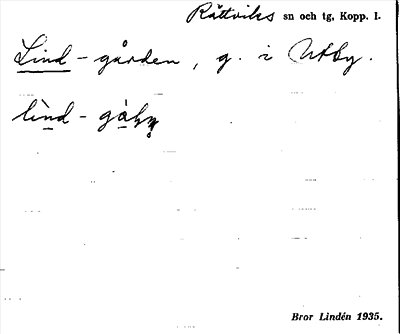 Rättviks sn och tg, Kopp. l.
Lind-gården, g. i Utby.
lìnd-
Bror Lindén 1935.